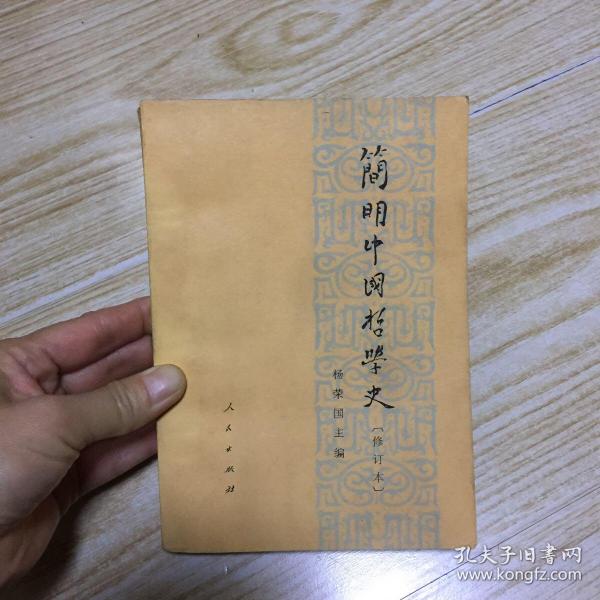 簡明中國哲學史
〔修订本〕
杨荣国主编
人民出版社
孔夫子旧书网
www.kongfz.com